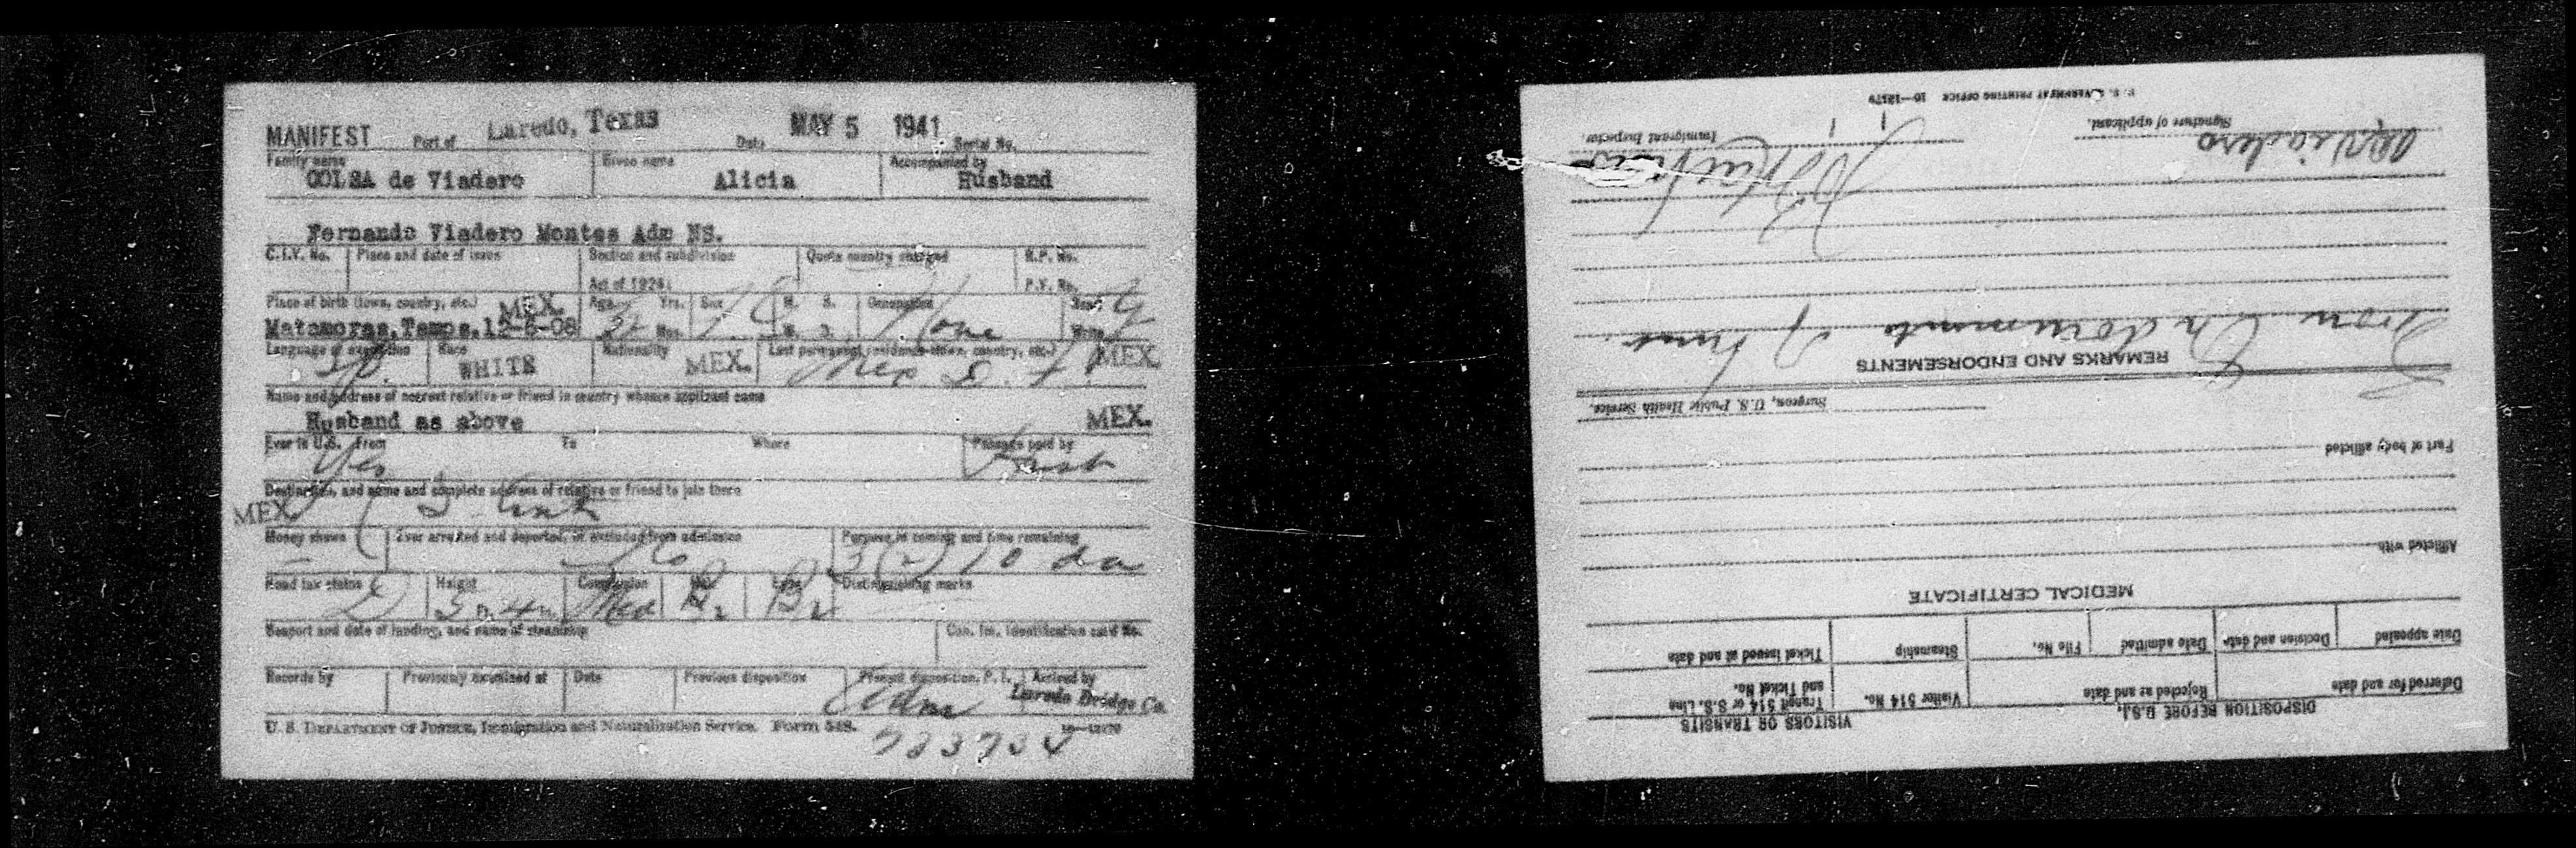 MANIFEST Port of Laredo, Texas Date MAY 5 1941 Serial No.
Family name Given name Accompanied by
COLSA de Viadero Alicia Husband
Fernando Viadero Montes Adm NS.
C.I.V. No. Place and date of issue Section and subdivision Quota country charged R.P. No.
Act of 1924: P.V. No.
Place of birth (town, country, etc.) MEX. Age Yrs. Sex M. S. Occupation Read Y
Matamoras, Tamps. 12-6-08 Mos. W. D. None Write
Language or exemption Race Nationality Last permanent residence (town, country, etc.) MEX
Sp. WHITE MEX. Mex D. F.
Name and address of nearest relative or friend in country whence applicant came
Husband as above MEX.
Ever in U.S. From To Where Passage paid by
Yes Husb
Destination, and name and complete address of relative or friend to join there
MEX
Money shown Ever arrested and deported, or excluded from admission Purpose in coming and time remaining
No 3(2) 10 da
Head tax status Height Complexion Hair Eyes Distinguishing marks
5 ft. 4 in. Med Br Br
Seaport and date of landing, and name of steamship Can. Im. Identification card No.
Records by Previously examined at Date Previous disposition Present disposition, P. I. Arrived by
Adm Laredo Bridge Co.
U. S. DEPARTMENT OF JUSTICE, Immigration and Naturalization Service. Form 548. 16—12179
723734
VISITORS OR TRANSITS DISPOSITION BEFORE B.S.I.
Deferred for and date Rejected as and date Visitor 514 No. Transit 514 or S.S. Line and Ticket No.
Date appealed Decision and date Date admitted File No. Steamship Ticket issued at and date
MEDICAL CERTIFICATE
Afflicted with
Part of body afflicted
Surgeon, U.S. Public Health Service.
REMARKS AND ENDORSEMENTS
documents
Viadero
Signature of applicant. Immigrant Inspector.
U. S. GOVERNMENT PRINTING OFFICE 16—12179